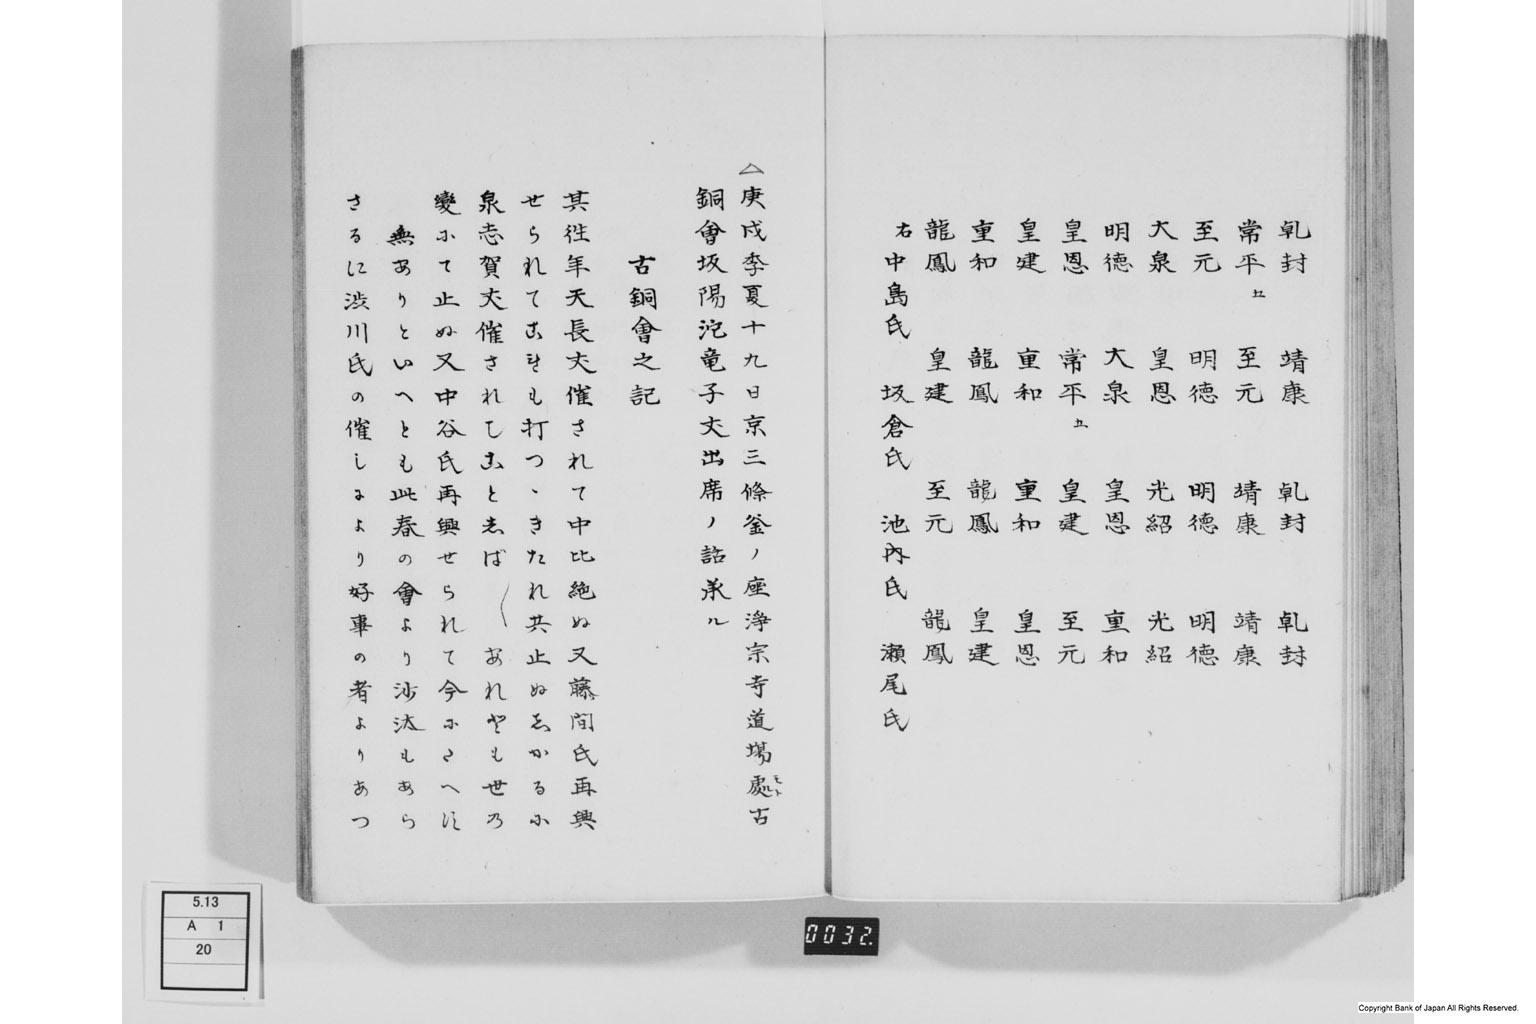 乹封　靖康　乹封　乹封
常平五　至元　靖康　靖康
至元　明徳　明徳　明徳
大泉　皇恩　光紹　光紹
明徳　大泉　皇恩　重和
皇恩　常平五　皇建　至元
皇建　重和　重和　皇恩
重和　龍鳳　龍鳳　皇建
龍鳳　皇建　至元　龍鳳
右中島氏　坂倉氏　池内氏　瀬尾氏
△庚戌季夏十九日京三條釜ノ座浄宗寺道場處ニモト古
銅會坂陽沱竜子丈出席ノ話承ル
古銅會之記
其徃年天長丈催されて中比絶ぬ又藤間氏再興
せられて
も打つゝきたれ共止ぬ志かるふ
泉志賀丈催されしことあれば
あれ共も世乃
變ふて止ぬ又中谷氏再興せられて今ふさへ
無ありといへとも此春の會より沙汰もあら
さるに渋川氏の催しによより好事の者よりあつ
5.13
A 1
20
0032.
Copyright Bank of Japan All Rights Reserved.